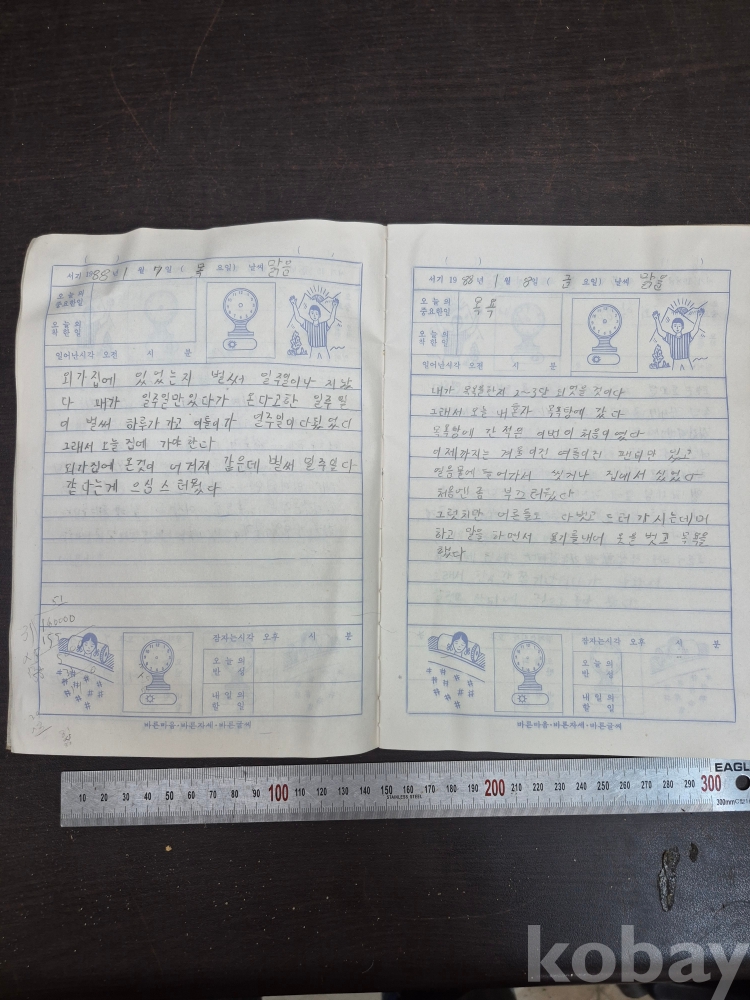 서기 1988년 1월 7일 ( 목 요일) 날씨 맑음
오늘의
중요한일
오늘의
착한일
일어난시각 오전 시 분
외가집에 있었는지 벌써 일주일이나 지났
다 내가 일주일만있다가 온다고한 일주일
이 벌써 하루가 가고 이틀이가 일주일이다됐었다
그래서 오늘 집에 가야 한다
외가집에 온것이 어거제 같은데 벌써 일주일다
같다는게 으심스러웠다
160000
잠자는시각 오후 시 분
오늘의
반성
내일의
할일
바른마음·바른자세·바른글씨
서기 1988년 1월 8일 ( 금 요일) 날씨 맑음
오늘의
중요한일
목욕
오늘의
착한일
일어난시각 오전 시 분
내가 목욕을한지 2~3달 되었을 것이다
그래서 오늘 내 혼자 목욕탕에 갔다
목욕탕에 간적은 이번이 처음이였다
이제까지는 겨울이건 여름이건 팬티만 입고
얼음물에 들어가서 씻거나 집에서 씻었다
처음엔 좀 부끄러웠다
그렇지만 어른들도 다벗고 드러가시는데머
하고 말을 하면서 용기를내어 옷을 벗고 목욕을
했다
잠자는시각 오후 시 분
오늘의
반성
내일의
할일
바른마음·바른자세·바른글씨
10 20 30 40 50 60 70 80 90 100 110 120 130 140 150 160 170 180 190 200 210 220 230 240 250 260 270 280 290 300
STAINLESS STEEL
EAGL
300mm
kobay